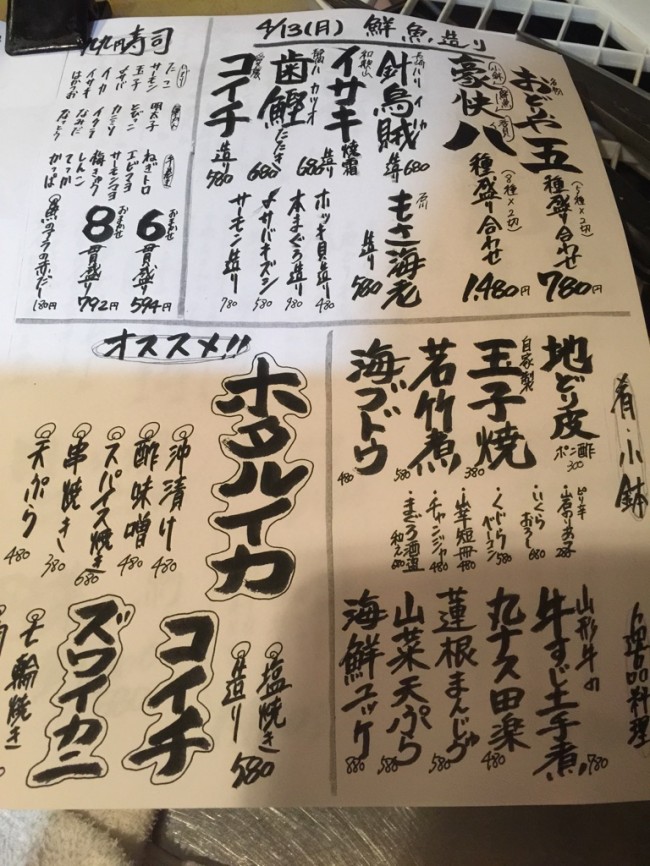 4/13(月) 鮮魚造り
おどや五種盛り合わせ 780円
(5種×2切)
豪快八種盛り合わせ 1,480円
(8種×2切)
針烏賊 造り 680
ハリイカ
もさ海老 造り 580
石川
イサキ 焼霜造り 680
和歌山
歯鰹たたき 680
ハガツオ
コイチ 造り 580
ホッキ貝造り 480
本まぐろ造り 980
〆サバキズシ 580
サーモン造り 780
九九円寿司
にぎり
たこ
サーモン
玉子
〆サバ
イカ
イサキ
はがつお
軍かん
明太子
とびっこ
カニミソ
イクラ
なみだ
なっとう
手巻き
ねぎトロ
エビマヨ
サーモンマヨ
梅きゅう
しんこ
てっか
かっぱ
おまかせ
6貫盛り 594円
おまかせ
8貫盛り 792円
魚のアラの赤だし 180円
肴・小鉢
地どり皮 ポン酢 300
自家製
玉子焼 380
若竹煮 580
海ブドウ 480
ピリ辛
・いくらおろし 680
・くじらベーコン 580
・山芋短冊 480
・チャンジャ 480
・まぐろ酒盗和え
一品料理
山形牛の
牛すじ土手煮 780
丸ナス田楽 480
蓮根まんじゅう 580
山菜天ぷら 580
海鮮ユッケ 880
オススメ!!
ホタルイカ
沖漬け 480
酢味噌 480
スパイス焼き 680
串焼き 380
天ぷら 480
コイチ
塩焼き
造り 580
ズワイカニ
七輪焼き